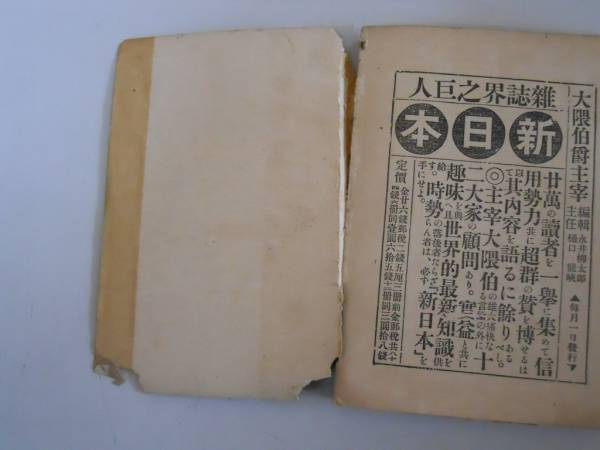 大隈伯爵主宰
編輯主任 永井柳太郎 樋口龍峽
▲毎月一日發行▼
雜誌界之巨人
新日本
廿萬の讀者を一擧に集めて信
用勢力共に超群の賛を博せるは
以て其内容を語るに餘りあるべし。
◎主宰大隈伯の雄大痛快なる言論の外に十
二大家の顧問あり。實益と共に
趣味を與へ且世界的最新知識を供
給す。時勢の落後者たらざらん者は、必ず『新日本』を
手にせよ。
定價 金廿六錢郵税一錢五厘三冊前金郵税共八十
四錢六冊同壹圓六拾五錢十二冊同三圓拾八錢